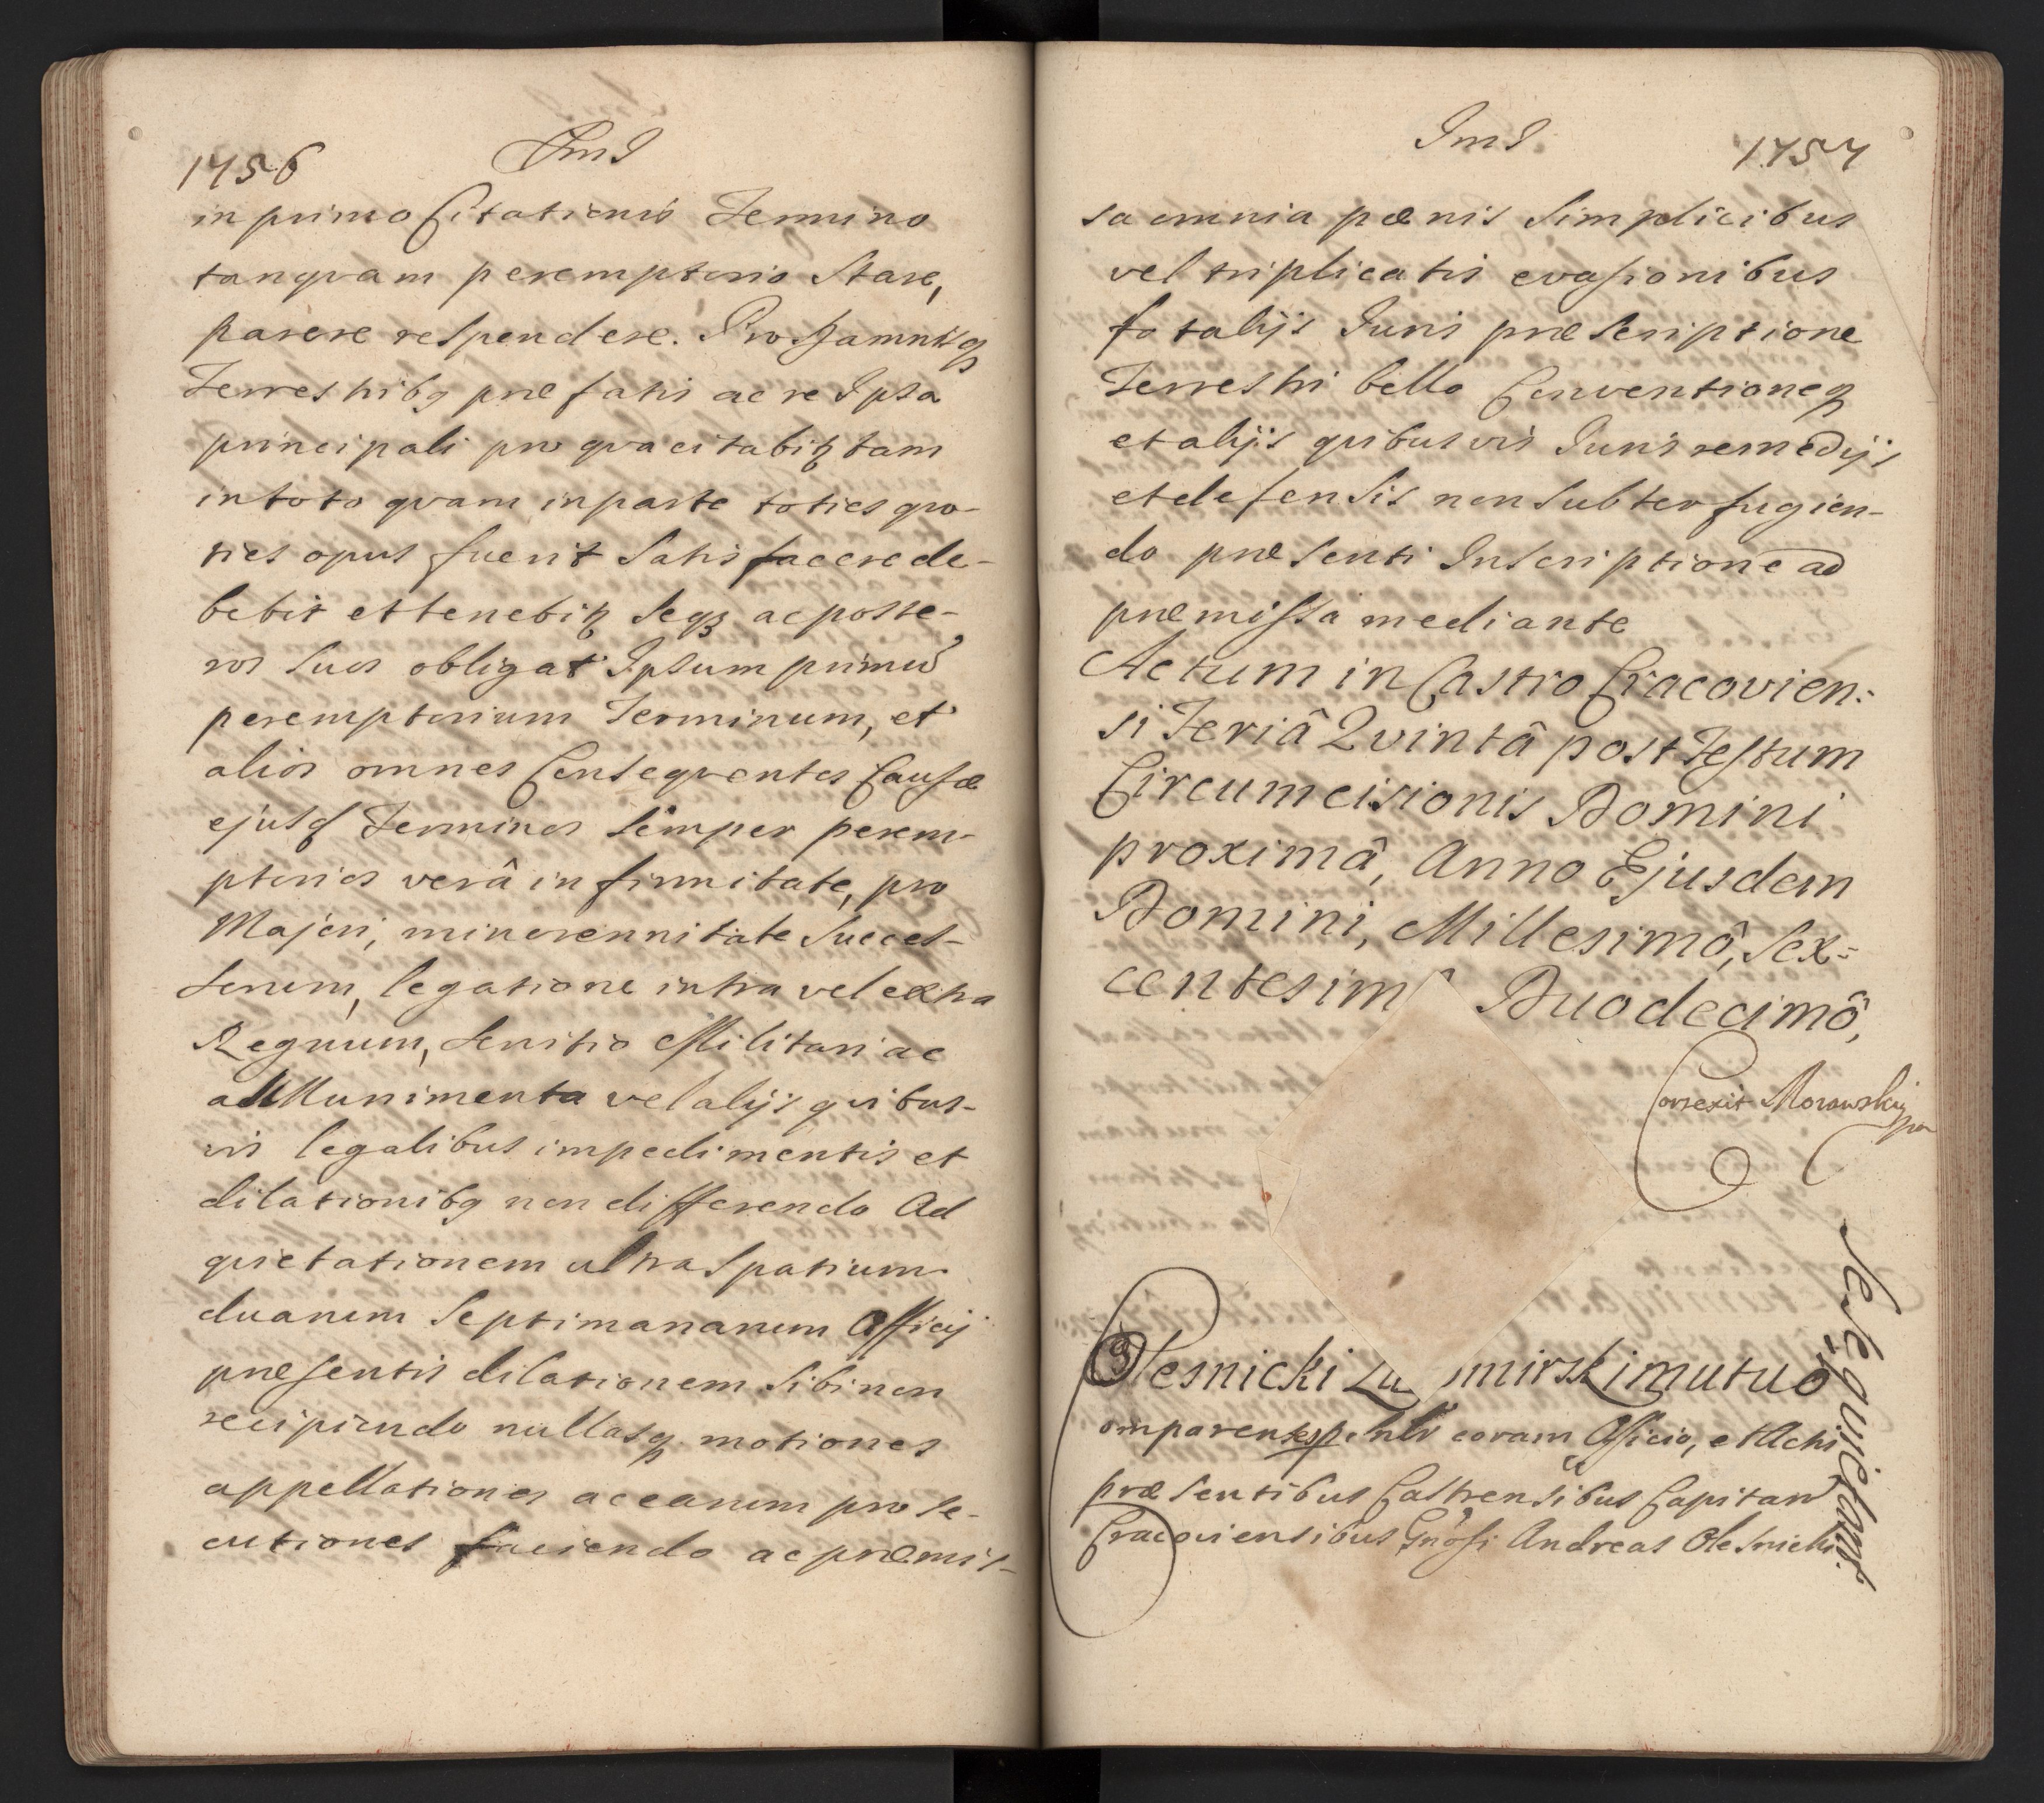 1756
ImJ
in primo Citationis Termino
tanqvam peremptorio Stare,
parere respondere. Pro Damnisq
Terrestribq præfatis ac re Ipsa
principali pro qva citabitz tam
in toto qvam in parte toties qvo-
ties opus fuerit Satisfacere de-
bebit et tenebitz Seqz ac poste-
ros Suos obligat Ipsum primũ
peremptorium Terminum, et
alios omnes Conseqventes Causæ
ejusd Terminos Semper perem-
ptorios verâ infirmitate, pro
Majori, minorennitate Succes-
sorum, legatione intra vel extra
Regnum, Servitio Militari ac
ad Munimenta vel alijs qvibus-
vis legalibus impedimentis et
dilationibq non differendo Ad
qvietationem ultra Spatium
duarum Septimanarum Officij
præsentis dilationem Sibi non
recipiendo nullasq motiones
appellationes ac earum prose-
cutiones faciendo ac præmis-
ImJ
1757
sa omnia pænis Simplicibus
vel triplicatis evasionibus
fatalijs Juris præscriptione
Terrestri bello Conventioneq
et alijs qvibusvis Juris remedijs
et defensis non Subterfugien-
do præsenti Inscriptione ad
præmissa mediante
Actum in Castro Cracovien:
si Feriâ Qvintâ post Festum
Circumcisionis Domini
proximâ, Anno Ejusdem
Domini, Millesimô, Sex=
centesim Duodecimô,
Correxit Morawskij
Olesnicki Lu mirski mutuo
Se Qvietant.
omparentes coram Officio, et Actis
præsentibus Castrensibus Capitan
Cracoviensibus Gnosi Andreas Olesnicki